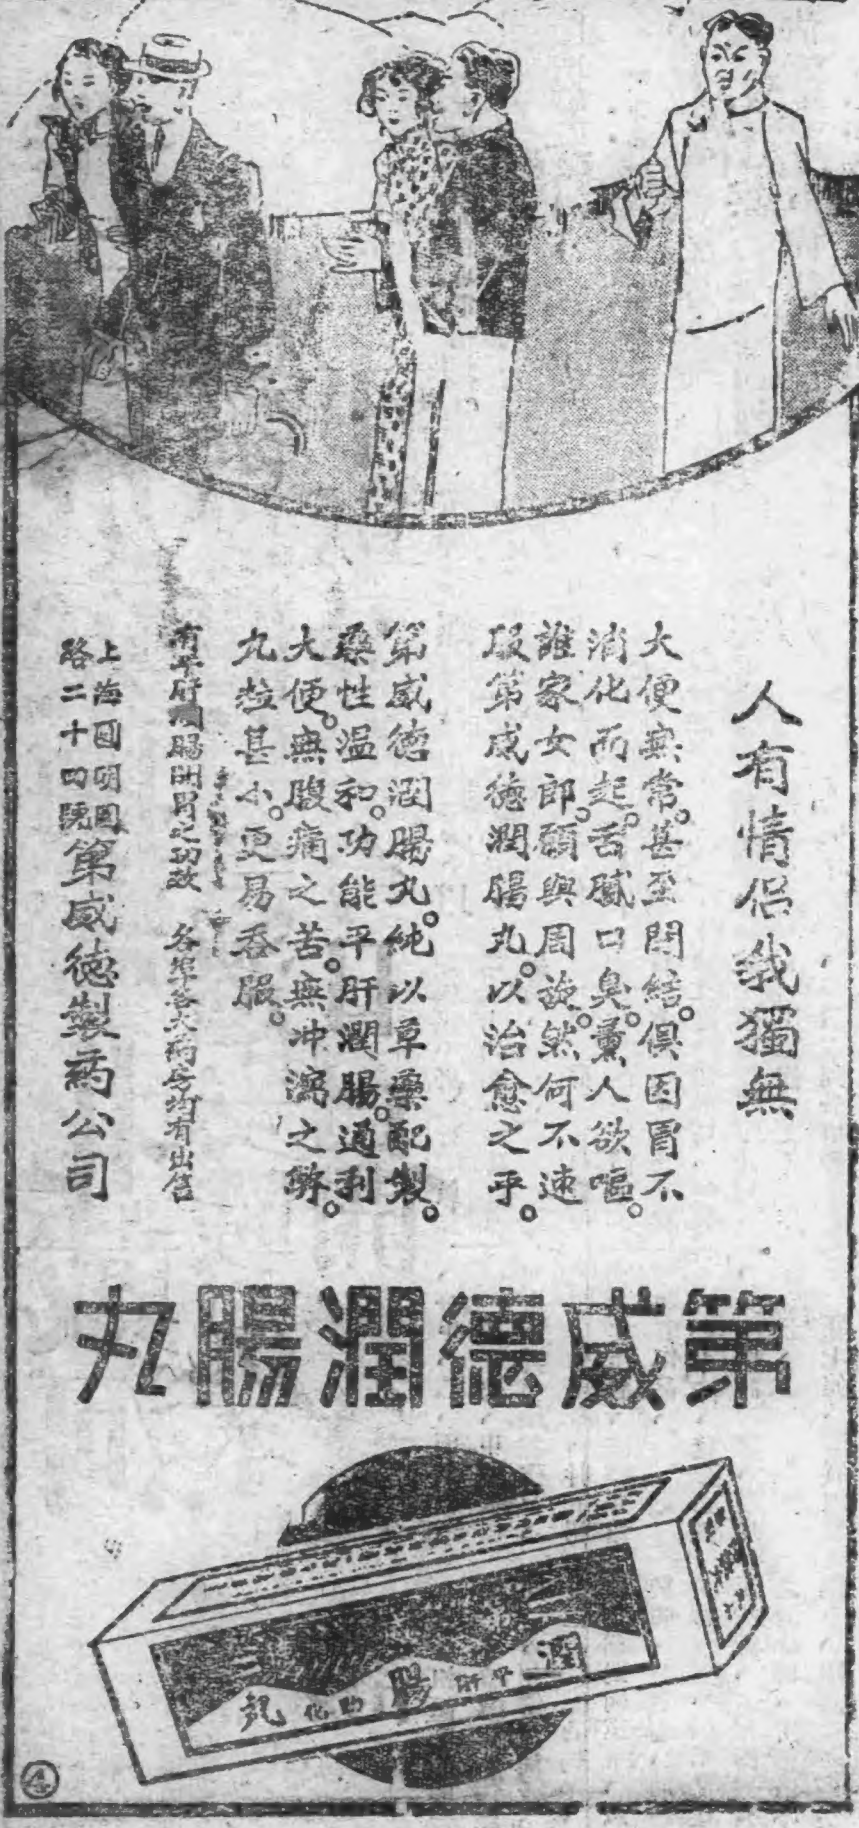 人有情侶我獨無
大便無常。甚至閉結。俱因胃不
消化而起。舌膩口臭。薰人欲嘔。
誰家女郎。願與周旋。然何不速
服第威德潤腸丸。以治愈之乎。
第威德潤腸丸。純以草藥配製。
藥性溫和。功能平肝潤腸。通利
大便。無腹痛之苦。無冲瀉之弊。
丸粒甚小。更易吞服。
有平肝潤腸開胃化之功效 各埠各大藥房均有出售
上海圓明園
路二十四號
第威德製葯公司
第威德潤腸丸
潤平肝腸助化丸
4